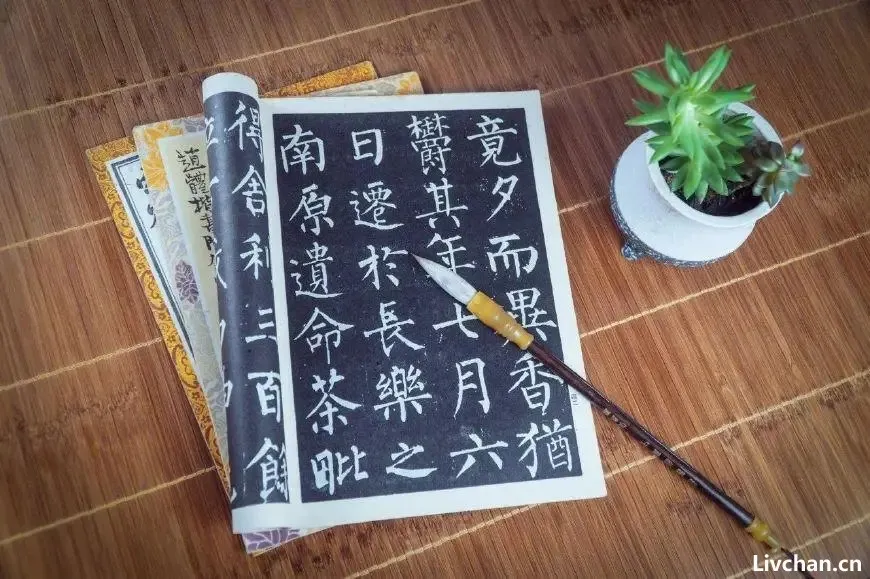 竟夕而異香猶
鬱其年七月六
日遷於長樂之
南原遺命茶毗
得舍利三百餘
Livchan.cn